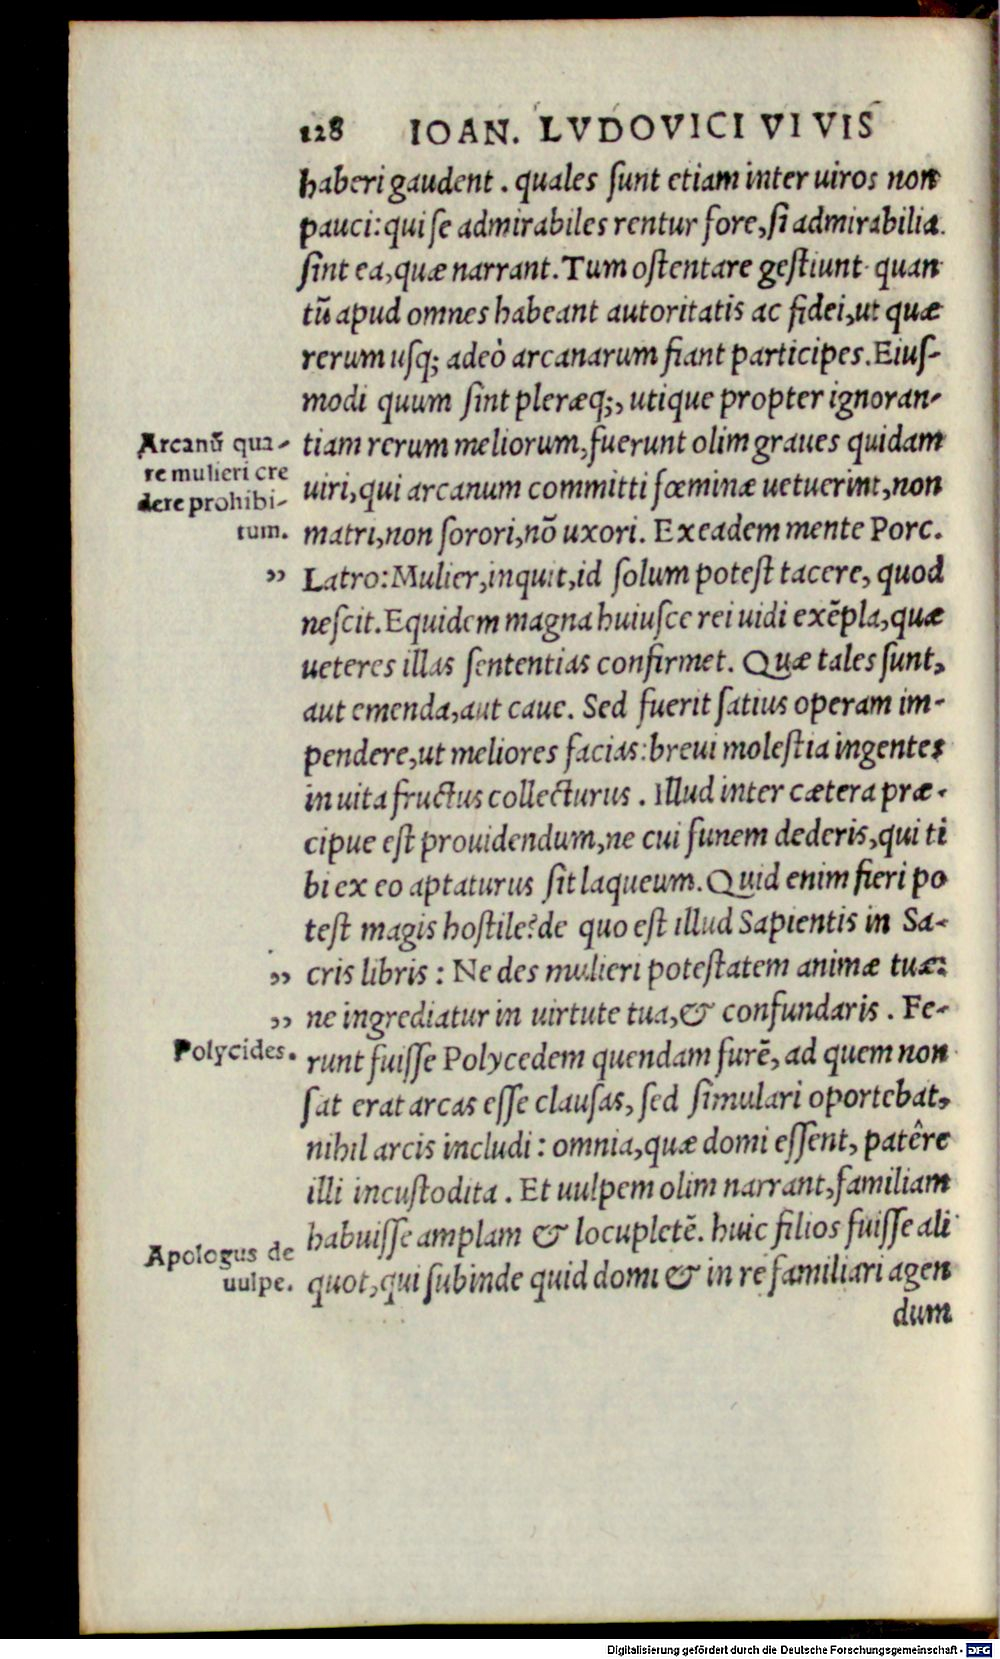 128 IOAN. LVDOVICI VIVIS
haberi gaudent. quales sunt etiam inter uiros non
pauci: qui se admirabiles rentur fore, si admirabilia
sint ea, quæ narrant. Tum ostentare gestiunt quan
tū apud omnes habeant autoritatis ac fidei, ut quæ
rerum usq; adeò arcanarum fiant participes. Eius-
modi quum sint pleræq;, utique propter ignoran-
Arcanū qua-
re mulieri cre
dere prohibi-
tum.
tiam rerum meliorum, fuerunt olim graues quidam
uiri, qui arcanum committi fœminæ uetuerint, non
matri, non sorori, nō uxori. Ex eadem mente Porc.
„ Latro: Mulier, inquit, id solum potest tacere, quod
nescit. Equidem magna huiusce rei uidi exēpla, quæ
ueteres illas sententias confirmet. Quæ tales sunt,
aut emenda, aut caue. Sed fuerit satius operam im-
pendere, ut meliores facias: breui molestia ingentes
in uita fructus collecturus. Illud inter cætera præ-
cipue est prouidendum, ne cui funem dederis, qui ti
bi ex eo aptaturus sit laqueum. Quid enim fieri po
test magis hostile? de quo est illud Sapientis in Sa-
„ cris libris: Ne des mulieri potestatem animæ tuæ:
„ ne ingrediatur in uirtute tua, & confundaris. Fe-
Polycides.
runt fuisse Polycedem quendam furē, ad quem non
sat erat arcas esse clausas, sed simulari oportebat,
nihil arcis includi: omnia, quæ domi essent, patêre
illi incustodita. Et uulpem olim narrant, familiam
habuisse amplam & locupletē. huic filios fuisse ali
Apologus de
uulpe.
quot, qui subinde quid domi & in re familiari agen
dum
Digitalisierung gefördert durch die Deutsche Forschungsgemeinschaft - DFG